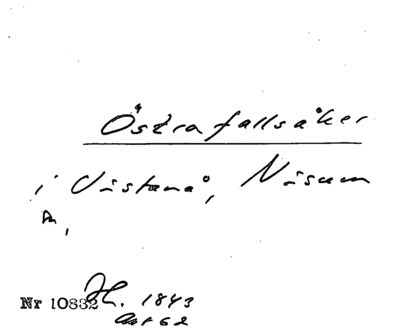 Östra fallsåker
i Västanå, Näsum
Nr 10832 H. 1843
Akt 62